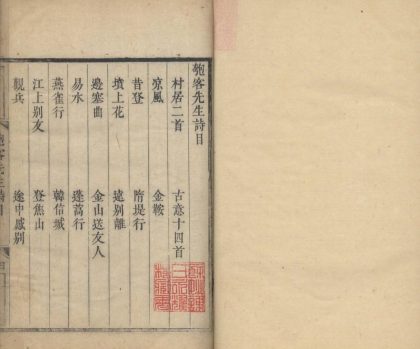 匏客先生詩目
村居二首 古意十四首
凉風 金鞍
昔登 隋堤行
墳上花 遠別離
邊塞曲 金山送友人
易水 蓬蒿行
燕雀行 韓信城
江上別友 登焦山
觀兵 途中感別